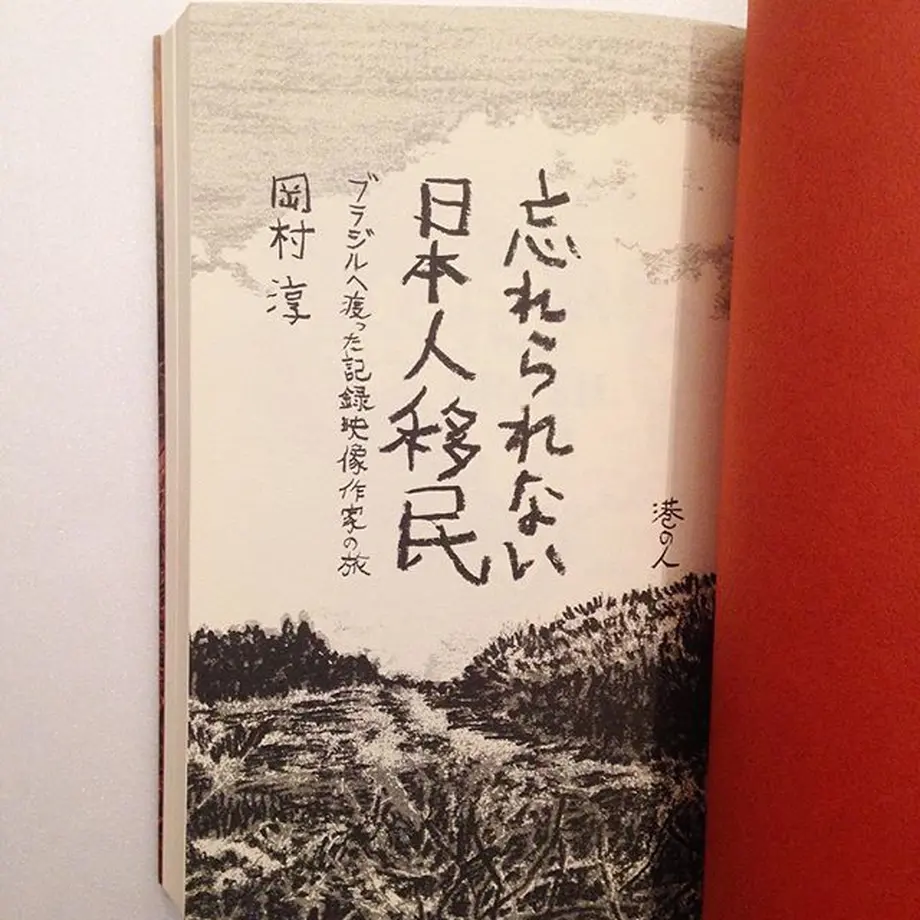 港の人
忘れられない
日本人移民
ブラジルへ渡った記録映像作家の旅
岡村淳